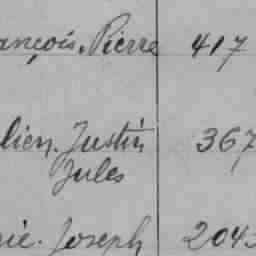 ançois. Pierre 417
lien. Justin 367
Jules
rie. Joseph 2045